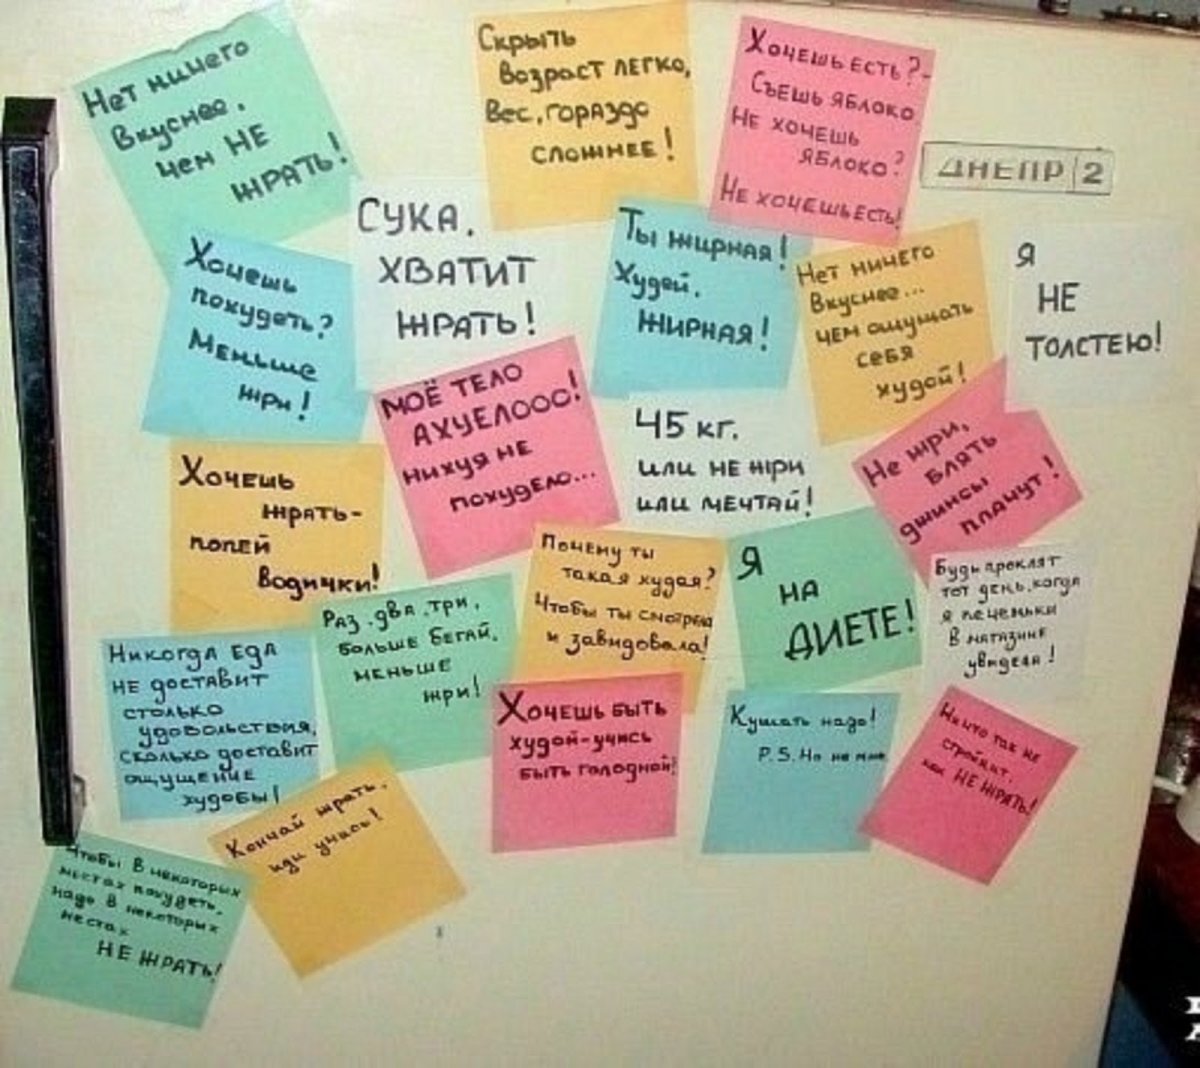 Нет ничего
вкуснее,
чем НЕ
ЖРАТЬ!
Скрыть
возраст легко,
Вес, гораздо
сложнее!
Хочешь есть?-
Съешь яблоко
Не хочешь
яблоко?
Не хочешь есть!
ДНЕПР 2
СУКА,
ХВАТИТ
ЖРАТЬ!
Хочешь
похудеть?
Меньше
жри!
Ты жирная!
Худей,
ЖИРНАЯ!
Нет ничего
Вкуснее...
чем ощущать
себя
худой!
Я
НЕ
ТОЛСТЕЮ!
МОЁ ТЕЛО
АХУЕЛООО!
нихуя не
похудело...
45 кг.
или не жри
или мечтай!
Не жри,
блять
джинсы
плачут!
Хочешь
жрать-
попей
водички!
Почему ты
такая худая?
Чтобы ты смотрела
и завидовала!
Я
НА
ДИЕТЕ!
Будь проклят
тот день, когда
я печеньки
в магазине
увидела!
Раз, два, три,
больше бегай,
меньше
жри!
Никогда еда
не доставит
столько
удовольствия,
сколько доставит
ощущение
худобы!
Хочешь быть
худой-учись
быть голодной!
Кушать надо!
P.S. Но не мне
Ничто так не
стройнит,
как НЕ ЖРАТЬ!
Кончай жрать,
иди учись!
Чтобы в некоторых
местах похудеть,
надо в некоторых
местах
НЕ ЖРАТЬ!